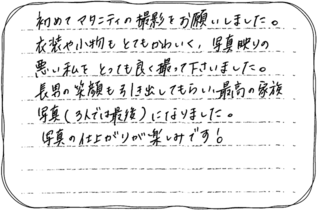 初めてマタニティの撮影をお願いしました。
衣装や小物もとてもかわいく、写真映りの
悪い私をとっても良く撮って下さいました。
長男の笑顔も引き出してもらい最高の家族
写真(3人では最後)になりました。
写真の仕上がりが楽しみです!